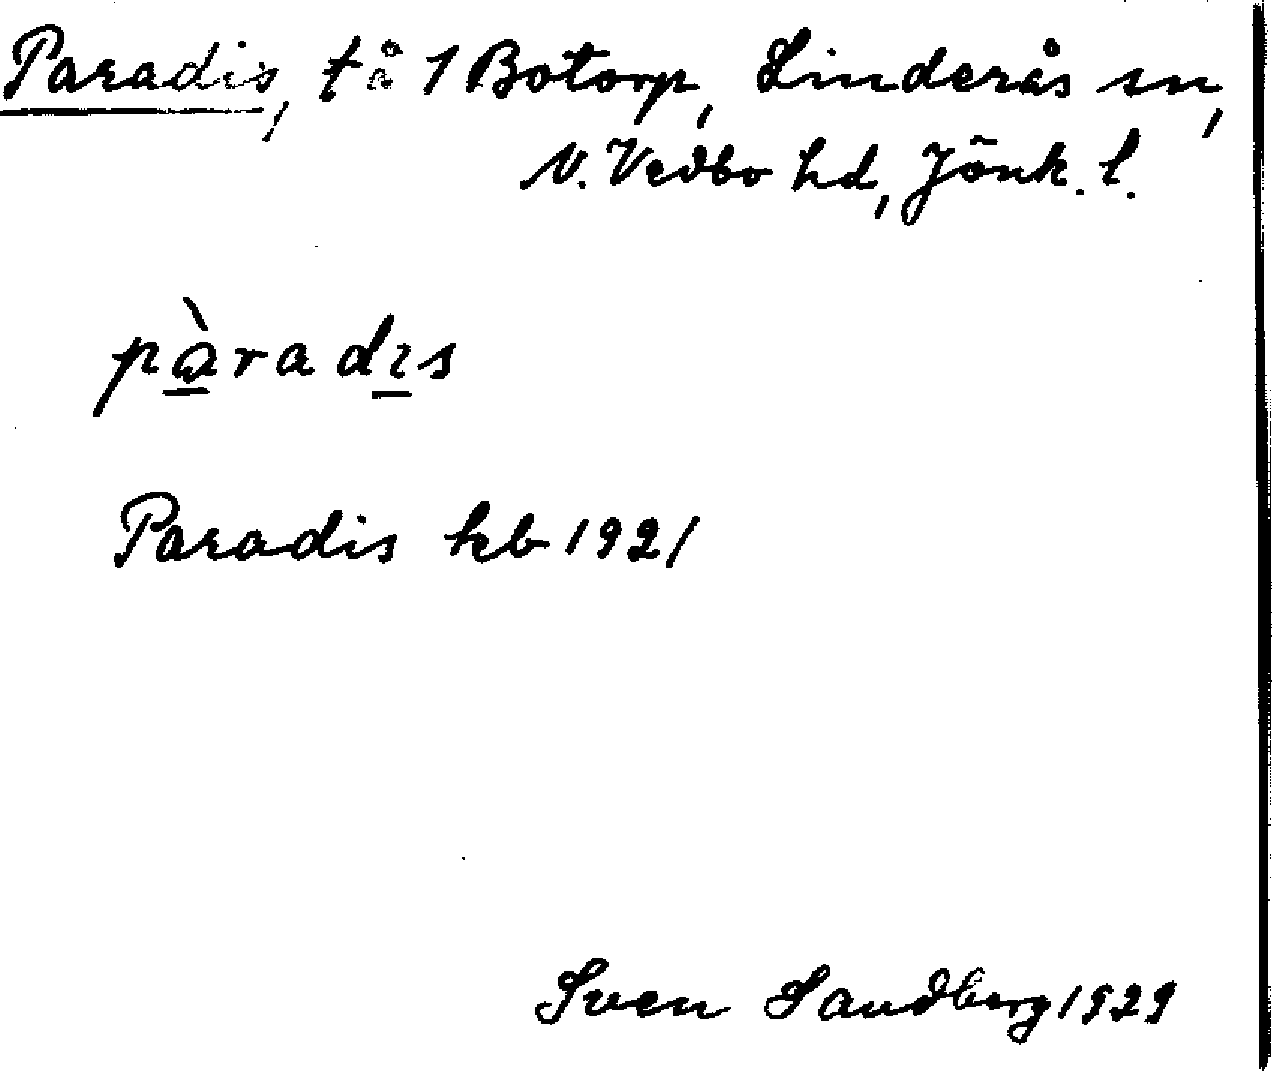 Paradis, t å 1 Botorp, Linderås sn,
N. Vedbo hd, Jönk. l.
pàradıs
Paradis kb 1921
Sven Sandberg 1929